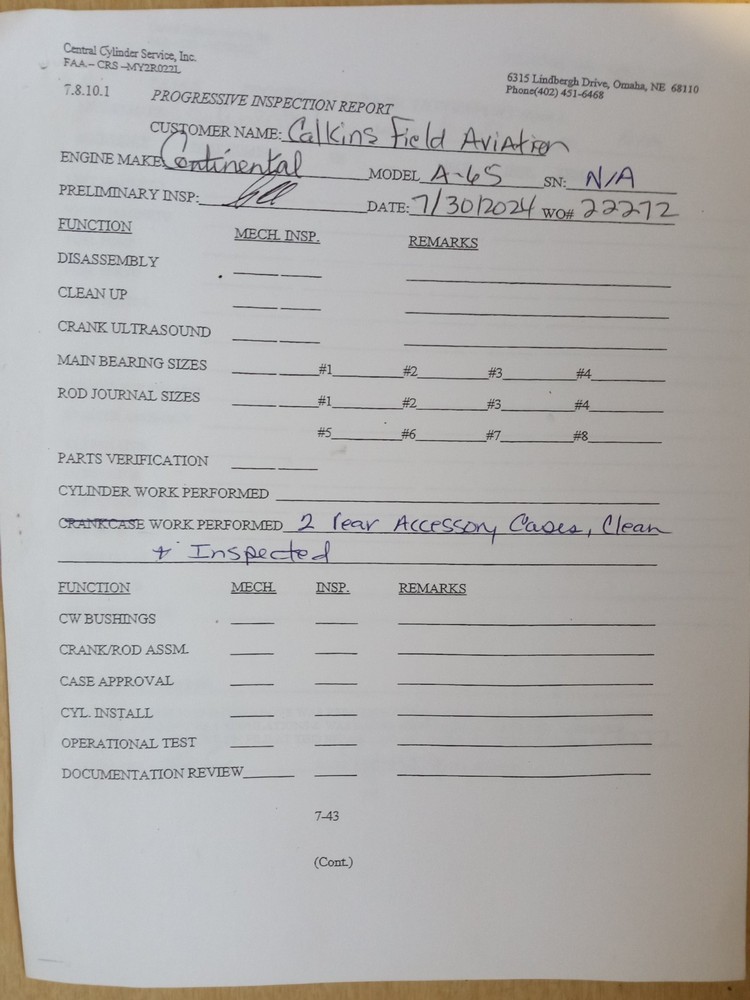 Central Cylinder Service, Inc.
FAA – CRS –MY2R022L
6315 Lindbergh Drive, Omaha, NE 68110
Phone(402) 451-6468
7.8.10.1 PROGRESSIVE INSPECTION REPORT
CUSTOMER NAME: Calkins Field Aviation
ENGINE MAKE Continental MODEL A-65 SN: N/A
PRELIMINARY INSP: DATE: 7/30/2024 WO# 22272
FUNCTION MECH. INSP. REMARKS
DISASSEMBLY
CLEAN UP
CRANK ULTRASOUND
MAIN BEARING SIZES #1 #2 #3 #4
ROD JOURNAL SIZES #1 #2 #3 #4
#5 #6 #7 #8
PARTS VERIFICATION
CYLINDER WORK PERFORMED
CRANKCASE WORK PERFORMED 2 rear Accessory Cases, Clean
+ Inspected
FUNCTION MECH. INSP. REMARKS
CW BUSHINGS
CRANK/ROD ASSM.
CASE APPROVAL
CYL. INSTALL
OPERATIONAL TEST
DOCUMENTATION REVIEW
7-43
(Cont.)